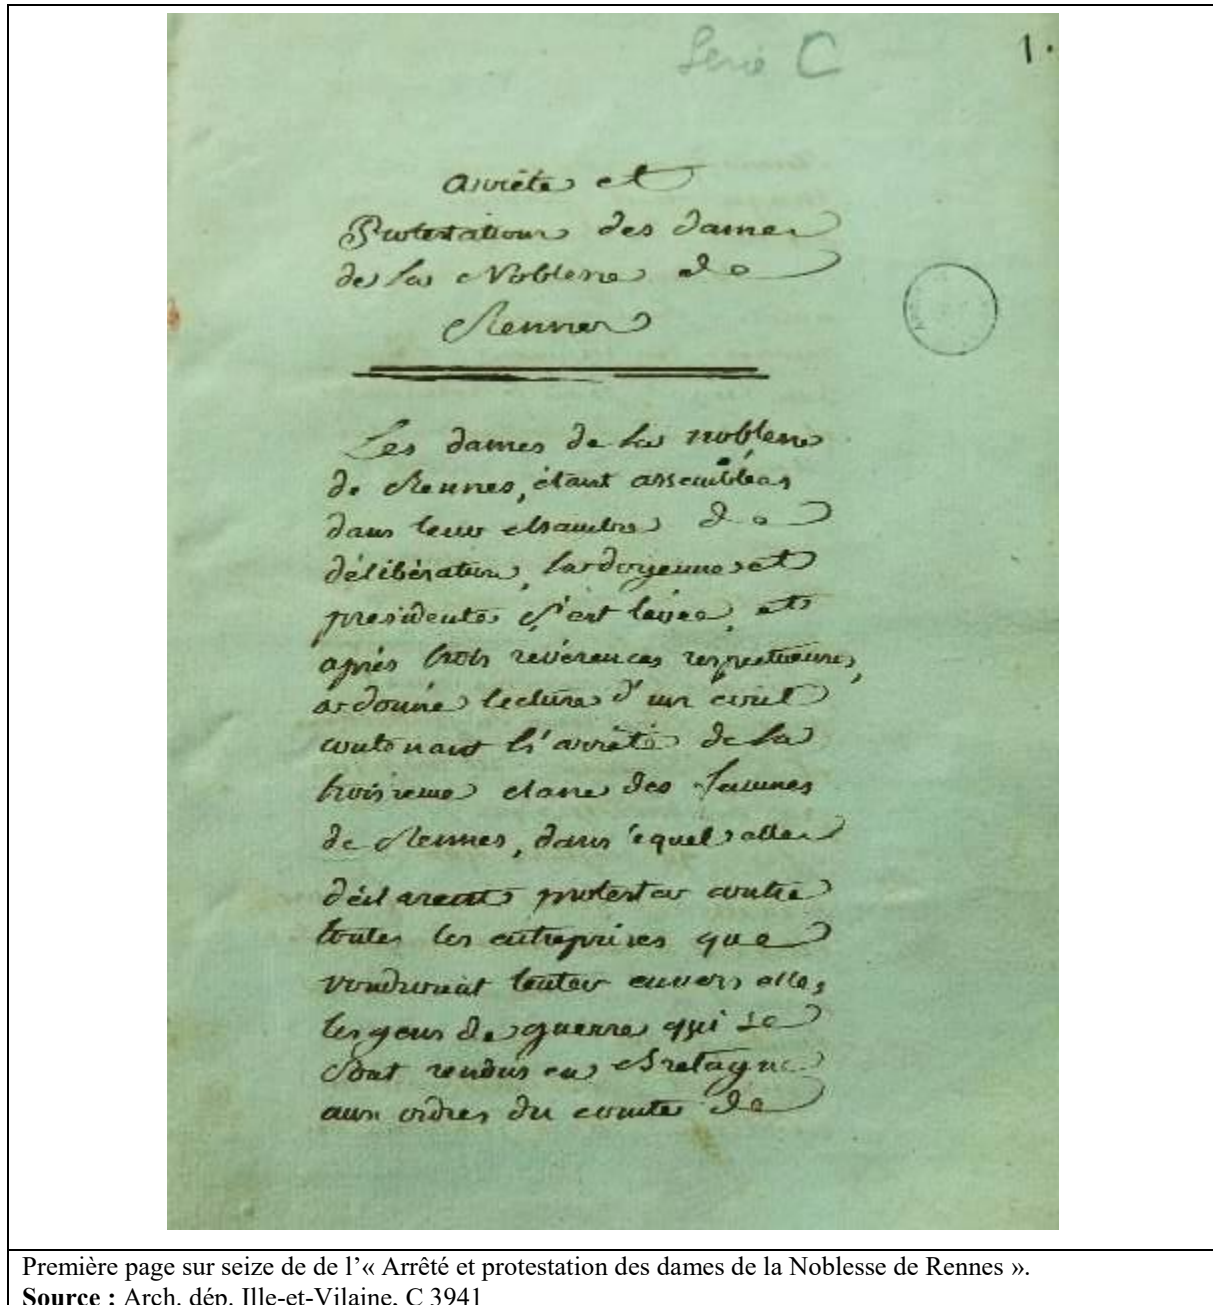 Serie C
1.
Arrêté et
Protestations des dames
de la Noblesse de
Rennes
Les dames de la noblesse
de Rennes, étant assemblées
dans leur chambre de
délibération, la doyenne et
presidente s'est levée, et
après trois révérences respectueuses,
a donné lecture d'un écrit
contenant l'arrêté de la
troisieme classe des femmes
de Rennes, dans lequel elles
déclarent protester contre
toutes les entreprises que
voudroient tenter envers elles,
les gens de guerre qui se
sont rendus en Bretagne
aux ordres du comte de
Première page sur seize de de l'« Arrêté et protestation des dames de la Noblesse de Rennes ».
Source : Arch. dép. Ille-et-Vilaine, C 3941